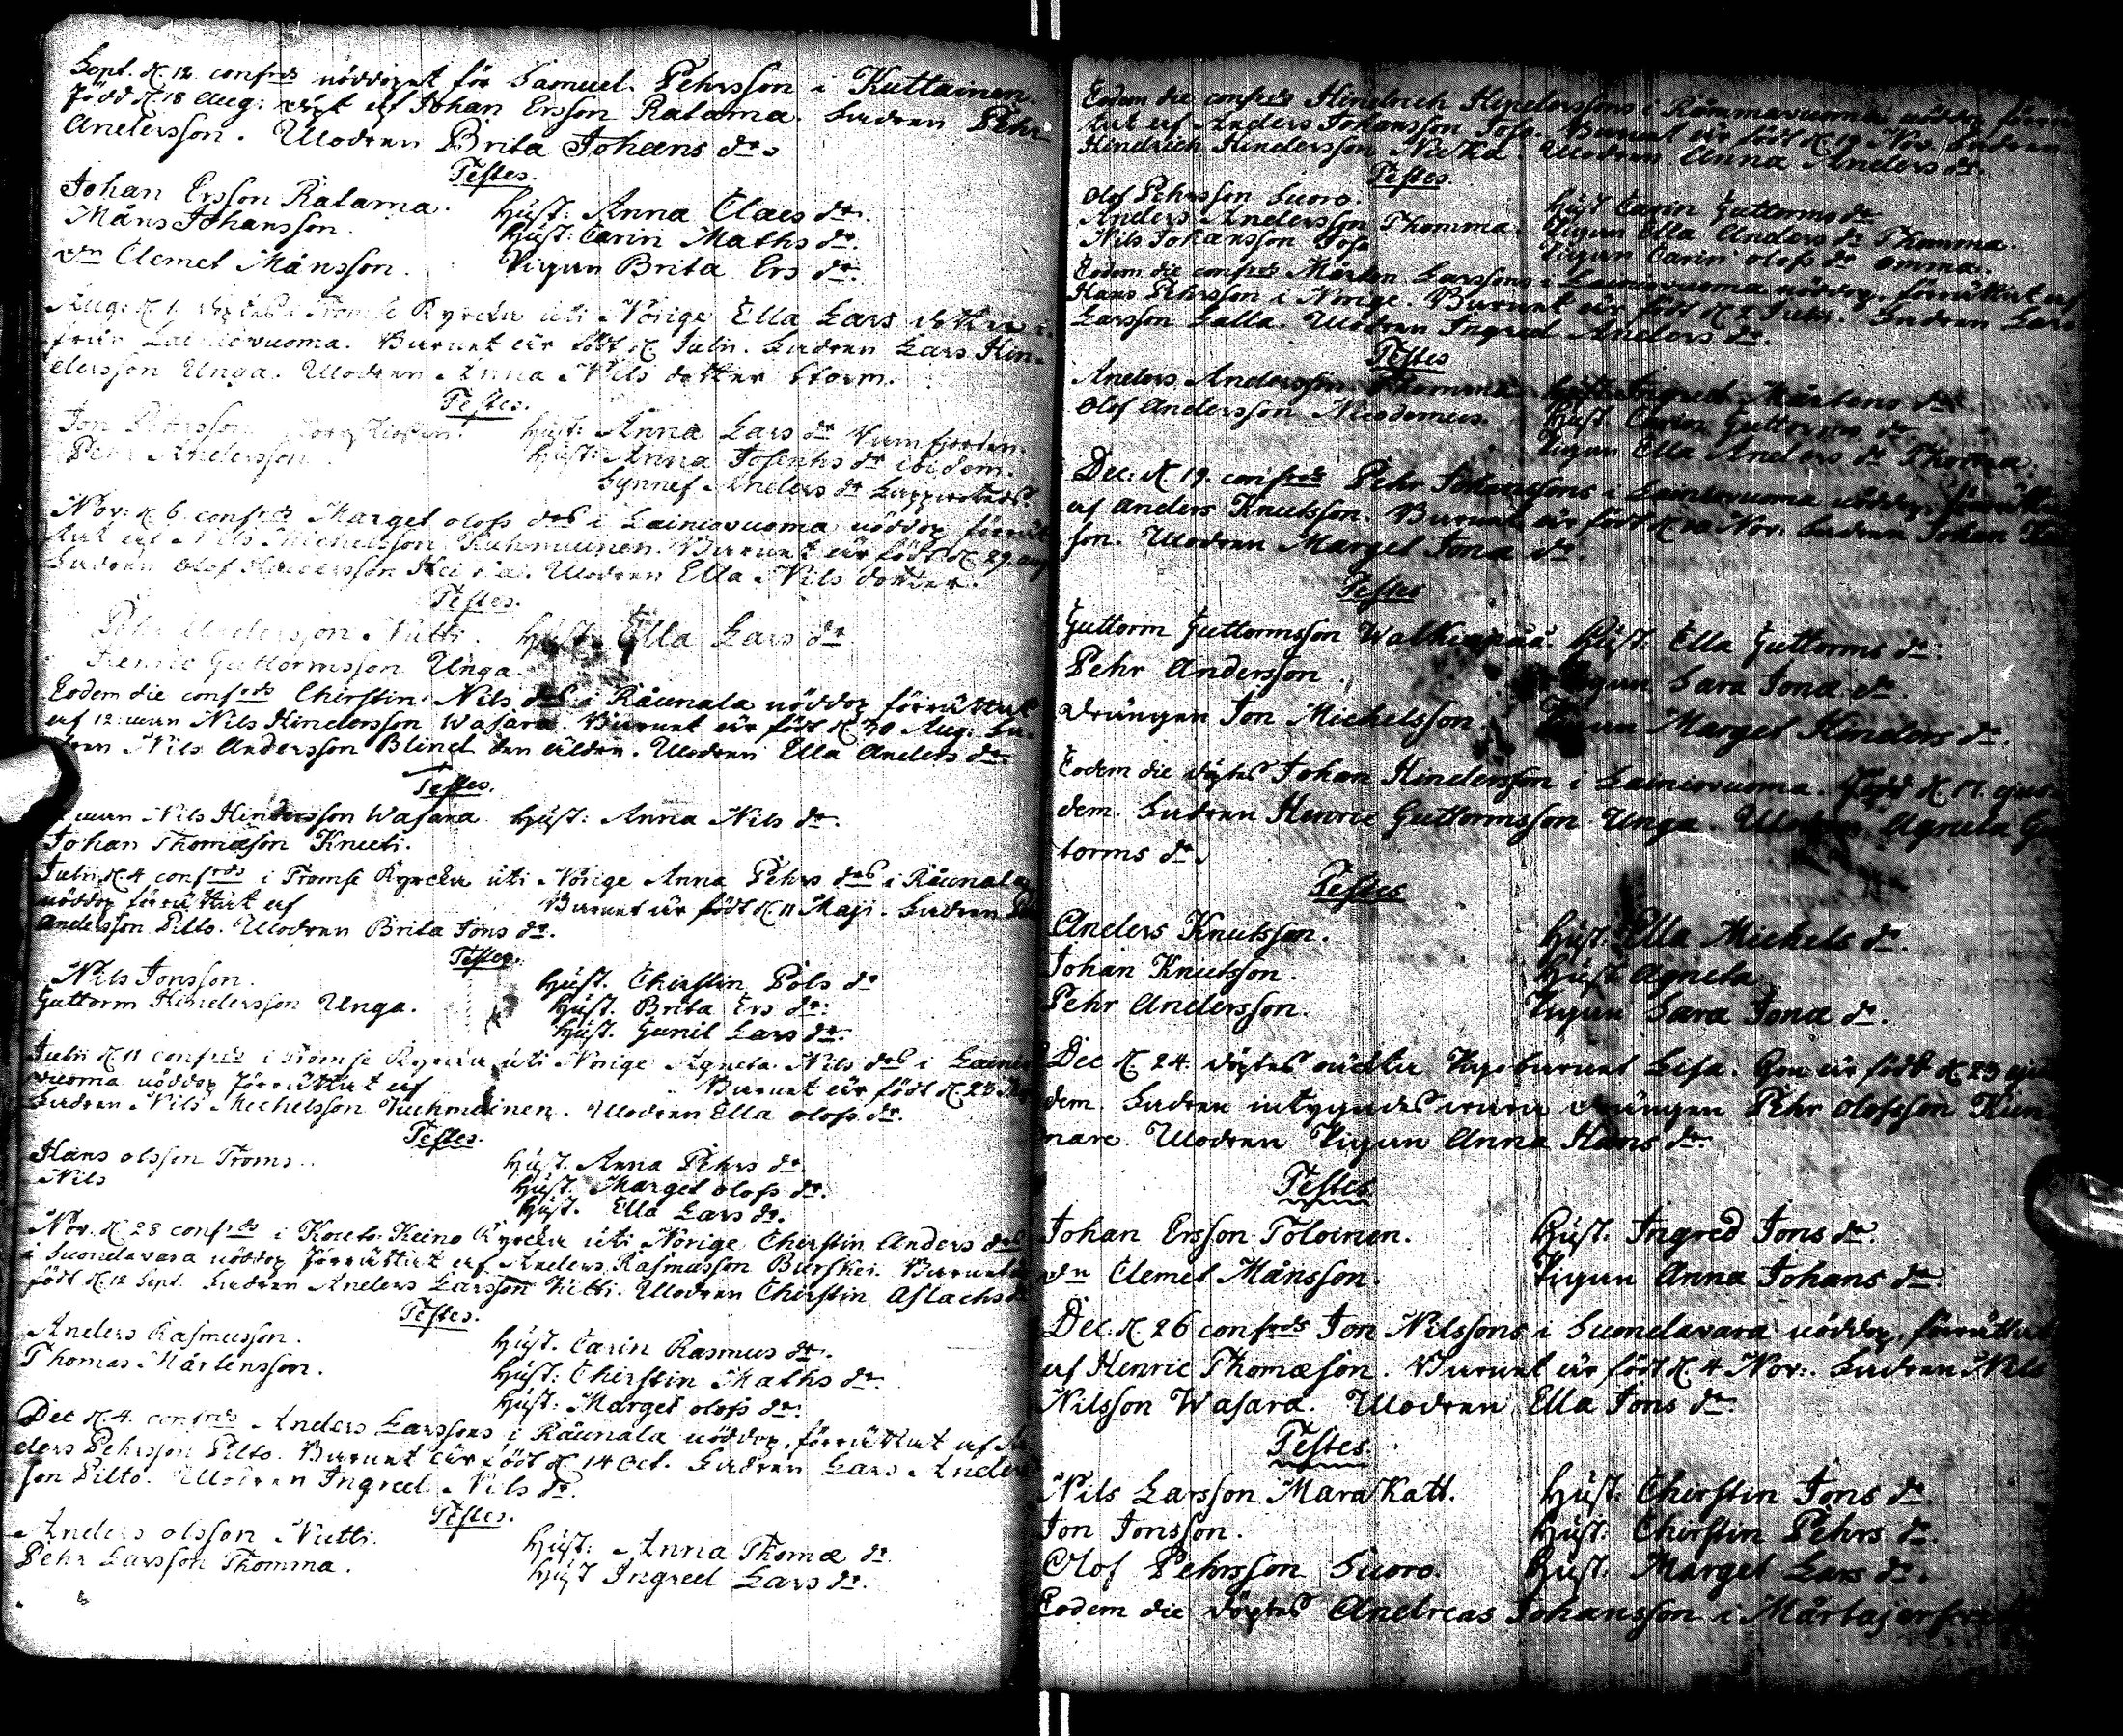 Sept. d. 12. confrds nöddopet för Samuel Pehrsson i Kuttainen.
Född d. 18 Aug: döpt af Johan Ersson Ratama. Fadren Pehr
Andersson. Modren Brita Johans dr.
Testes.
Johan Ersson Ratama. Hust: Anna Claes dr.
Måns Johansson. Hust: Carin Maths dr.
dn Clemet Månsson. Pigan Brita Ers dr.
Aug: d. 1. döptes i Tromse Kyrcka uti Norige Ella Lars dotter
från Lainiovuoma. Barnet är födt d. Julii. Fadren Lars Hin-
dersson Unga. Modren Anna Nils dotter Storm.
Testes.
Jon Pehrsson Hust: Anna Lars dr
Pehr Andersson Hust: Anna Josephs dr ibidem.
Synnef Anders dr
Nov: d. 6. confrds Marget olofs drs i Lainiovuoma nöddop förrät-
tat af Nils Michelsson Kuhmuinen. Barnet är födt d. 29. aug
Fadren Olof Hindersson Modren Ella Nils dotter.
Testes.
Pehr Andersson Nutti. Hust: Ella Lars dr
Henric Guttormsson Unga.
Eodem die confrds Chirstin Nils drs i Råunala nöddop förrättat
af 12:man Nils Hindersson Wasara. Barnet är födt d. 20 Aug: Fa-
dren Nils Andersson Blind den äldre. Modren Ella Anders dr.
Testes.
man Nils Hindersson Wasara Hust: Anna Nils dr.
Johan Thomæson Knuti.
Julii d. 4 confrds i Tromse Kyrcka uti Norige Anna Pehrs drs i Råunala
nöddop förrättat af Barnet är födt d. 11 Maji. Fadren
Andersson Pilto. Modren Brita Jons dr.
Testes.
Nils Jonsson. Hust. Chirstin Pols dr
Guttorm Hindersson Unga. Hust. Brita Ers dr.
Hust. Gunil Lars dr.
Julii d. 11 confrds i Tromse Kyrcka uti Norige Agneta Nils drs i Lainio
vuoma nöddop förrättat af Barnet är födt d. 23
Fadren Nils Michelsson Kuhmuinen. Modren Ella olofs dr.
Testes.
Hans olsson Troms. Hust. Anna Pehrs dr.
Nils Hust. Marget olofs dr.
Hust. Ella Lars dr.
Nov. d. 28 confrds i Kouto-Keino Kyrcka uti Norige Chirstin Anders drs
i Suondavara nöddop förrättat af Anders Rasmusson Burskei. Barnet
födt d. 12 Sept. Fadren Anders Larsson Kitti. Modren Chirstin Aslachs
Testes.
Anders Rasmusson. Hust. Carin Rasmus dr.
Thomas Mårtensson. Hust: Chirstin Maths dr.
Hust: Marget olofs dr.
Dec d. 4. confrds Anders Larssons i Råunala nöddop, förrättat af An
ders Pehrsson Pilto. Barnet är födt d. 14 Oct. Fadren Lars Anders
son Pilto. Modren Ingred Nils dr.
Testes.
Anders olsson Nutti. Hust: Anna Thomæ dr.
Pehr Larsson Thomma. Hust Ingred Lars dr.
Eodem die confrds Hindrich Hindersssons i Rommavuoma nöddop förrät
tat af Anders Johansson Joso. Barnet är födt d. 19 Nov. Fadren
Hindrich Hindersson Modren Anna Anders dr.
Testes.
Olof Pehrsson Suoro. Hust Carin Guttorms dr
Anders Andersson Thomma. Pigan Ella Anders dr Thomma.
Nils Johansson Joso Pigan Carin olofs dr omma.
Eodem die confrds Mårten Larssons i Lainiovuoma nöddop, förrättat af
Hans Pehrsson i Norige. Barnet är födt d. 2 Julii. Fadren Lars
Larsson Lalla. Modren Ingred Anders dr.
Testes
Anders Andersson Thomma Hust. Ingred Mårtens dr
Olof Andersson Nicodemus. Hust. Carin Guttorms dr.
Pigan Ella Anders dr Thoma.
Dec: d. 19. confrds Pehr Johanssons i Lainiovuoma nöddop, förrättat
af Anders Knutsson. Barnet är födt d. 20 Nov: Fadren Johan
son. Modren Marget Jona dr.
Testes
Guttorm Guttormsson Walkiapää. Hust: Ella Guttorms dr.
Pehr Andersson. Pigan Sara Jona dr.
drängen Jon Michelsson. Pigan Marget Hinders dr.
Eodem die döptes Johan Hindersson i Lainiovuoma. född d. 17. ejus
dem. Fadren Henric Guttormsson Unga. Modren Agneta Gut
torms dr.
Testes
Anders Knutsson. Hust. Ella Michels dr.
Johan Knutsson. Hust Agneta
Pehr Andersson. Pigan Sara Jona dr.
Dec d. 24. döptes oächta Pigobarnet Lisa. Hon är född d. 23 ejus
dem. Fadren intygades vara drängen Pehr Olofsson Kun-
nare. Modren Pigan Anna Hans dr.
Testes
Johan Ersson Toloinen. Hust. Ingred Jons dr.
dn Clemet Månsson. Pigan Anna Johans dr.
Dec. d. 26 confrds Jon Nilssons i Suondavara nöddop, förrättat
af Henric Thomæson. Barnet är födt d. 4 Nov:. Fadren Nils
Nilsson Wasara. Modren Ella Jons dr
Testes
Nils Larsson MaraKatt. Hust: Chirstin Jons dr
Jon Jonsson. Hust. Chirstin Pehrs dr
Olof Pehrsson Suoro. Hust. Marget Lars dr.
Eodem die döptes Andreas Johansson i